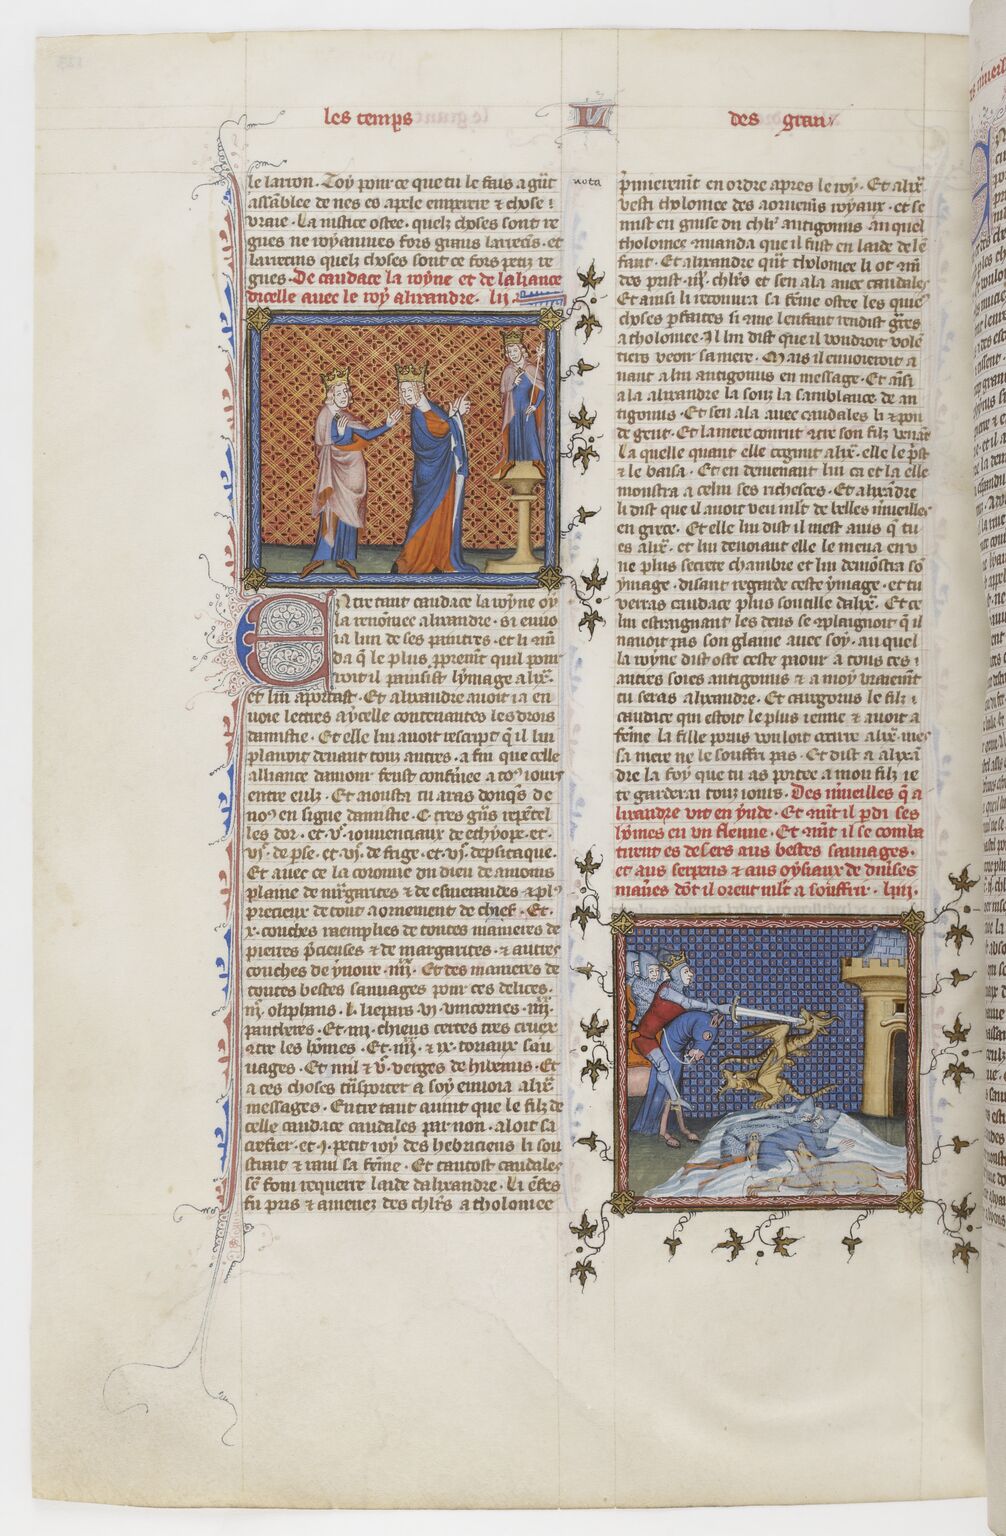 les temps
V
des grans
le larron. Toy pour ce que tu le fais a grãt
assãblee de nes es apele emperere et chose i
vraie. La iustice ostee. quelz choses sont re
gues ne royaumes fors grans larrecins. et
larrecins quelz choses sont ce fors petiz re
gues. De caudace la royne et de laliance
dicelle auec le roy alixandre. lij.
Entre tant caudace la royne oy
la renõmee alixandre. si enuo
ia lun de ses paintres. et li mã
da q̃ le plus
roit il painsist lymage alix̃.
et lui aportast. Et alixandre auoit ia en
uoie lectres a ycelle contenantes les drois
damistie. Et elle lui auoit rescript q̃ il lui
plairoit deuant touz autres. a fin que celle
alliance damour feust confermee a toꝰ iours
entre eulz. Et aiousta tu aras donqs de
noꝰ en signe damistie. C. tres
les dor. et. vͨ. iouuenciaux de ethyope. et.
vjͨ. de pse. et. vjͨ. de frige. et. vjͨ.
Et auec ce la coronne du dieu de amonis
plaine de margarites & de esmeraudes & plꝰ
precieux de tout aornement de chief. Et.
x. couches raemplies de toutes manieres de
pierres p̃cieuses & de margarites. & autres
couches de yuoire. iiij. Et des manieres de
toutes bestes sauuages pour tes delices.
iij. oliphans. l. liepars. vj. vnicornes. iiij.
pantheres. Et iiij. chiens certes tres cruex
9tre les hõmes. Et. iiij. & ix. toriaux sau
uages. Et mil & vͨ. verges de hibenus. Et
a ces choses trãsporter a soy enuoia alix̃
messages. Entre tant auint que le filz de
celle caudace caudales par non. aloit sa
et. j. petit roy des hebriciens li sou
straist & raui sa fẽme. Et tantost caudales
sẽ fouy requerre laide dalixandre. Li q̃les
fu pris & amenez des chlr̃s a tholomee
nota
p̃mierem̃t en ordre apres le roy. Et alix̃.
vesti tholomee des aornemẽs royaux. et se
mist en guise du chlr̃ antigonus. Au quel
tholomee manda que il fust en laide de lẽ
fant. Et alixandre quãt tholomee li ot mã
de prist. iijͨ. chlr̃s et sen ala auec caudales
Et ainsi li recouura sa fẽme ostee les quiex
choses p̃faites si 9me lenfant rendist gr̃ces
a tholomee. Il lui dist que il voudroit volẽ
tiers veoir sa mere. Mais il enuoieroit a
uant a lui antigonus en message. Et ainsi
ala alixandre la souz la samblance de an
tigonus. Et sen ala auec caudales li & pou
de gent. Et la mere courut 9tre son filz venãt
La quelle quant elle cognut alix̃. elle le p̃st
& le baisa. Et en demenant lui ca et la elle
monstra a celui ses richesces. Et alixãdre
li dist que il auoit veu mlt̃ de belles m̃ueilles
en grece. Et elle lui dist il mest auis q̃ tu
es alix̃. et lui denoiant elle le mena en v
ne plus secrete chambre et lui demõstra sõ
ymage. disant regarde ceste ymage. et tu
verras caudace plus soutille dalix̃. Et ce
lui estraignant les dens se 9plaignoit q̃ il
nauoit pas son glaiue auec soy. au quel
la royne dist oste ceste paour a tous ces i
autres soies antigonus & a moy vraiem̃t
tu seras alixandre. Et le filz i
caudace qui estoit le plus ienne & auoit a
fẽme la fille porus vouloit occirre alix̃. mes
sa mere ne le souffri pas. Et dist a alixã
dre la foy que tu as portee a mon filz ie
te garderai touz iours. Des m̃ueilles q̃ a
lixandre vit en ynde. Et 9m̃t il p̃di ses
hõmes en un fleuue. Et 9m̃t il se comba
tirent es desers aus bestes sauuages.
et aus serpens & aus oysiaux de diuẽses
maners dõt il orent mlt̃ a souffrir. liij.